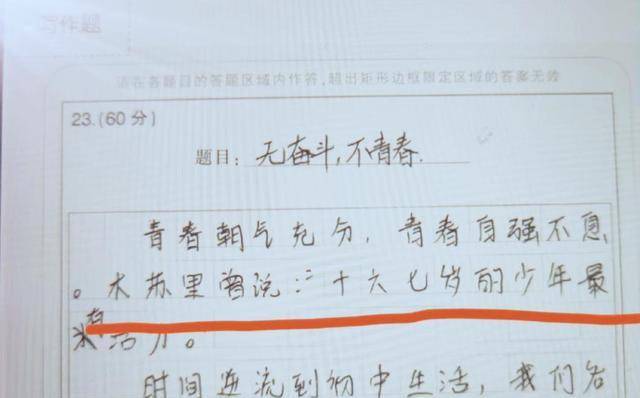 写作题
请在各题目的答题区域内作答，超出矩形边框限定区域的答案无效
23.(60分)
题目：无奋斗，不青春.
青春朝气充分，青春自强不息
。木苏里曾说：“十六七岁的少年最
有活力。
时间逆流到初中生活，我们名